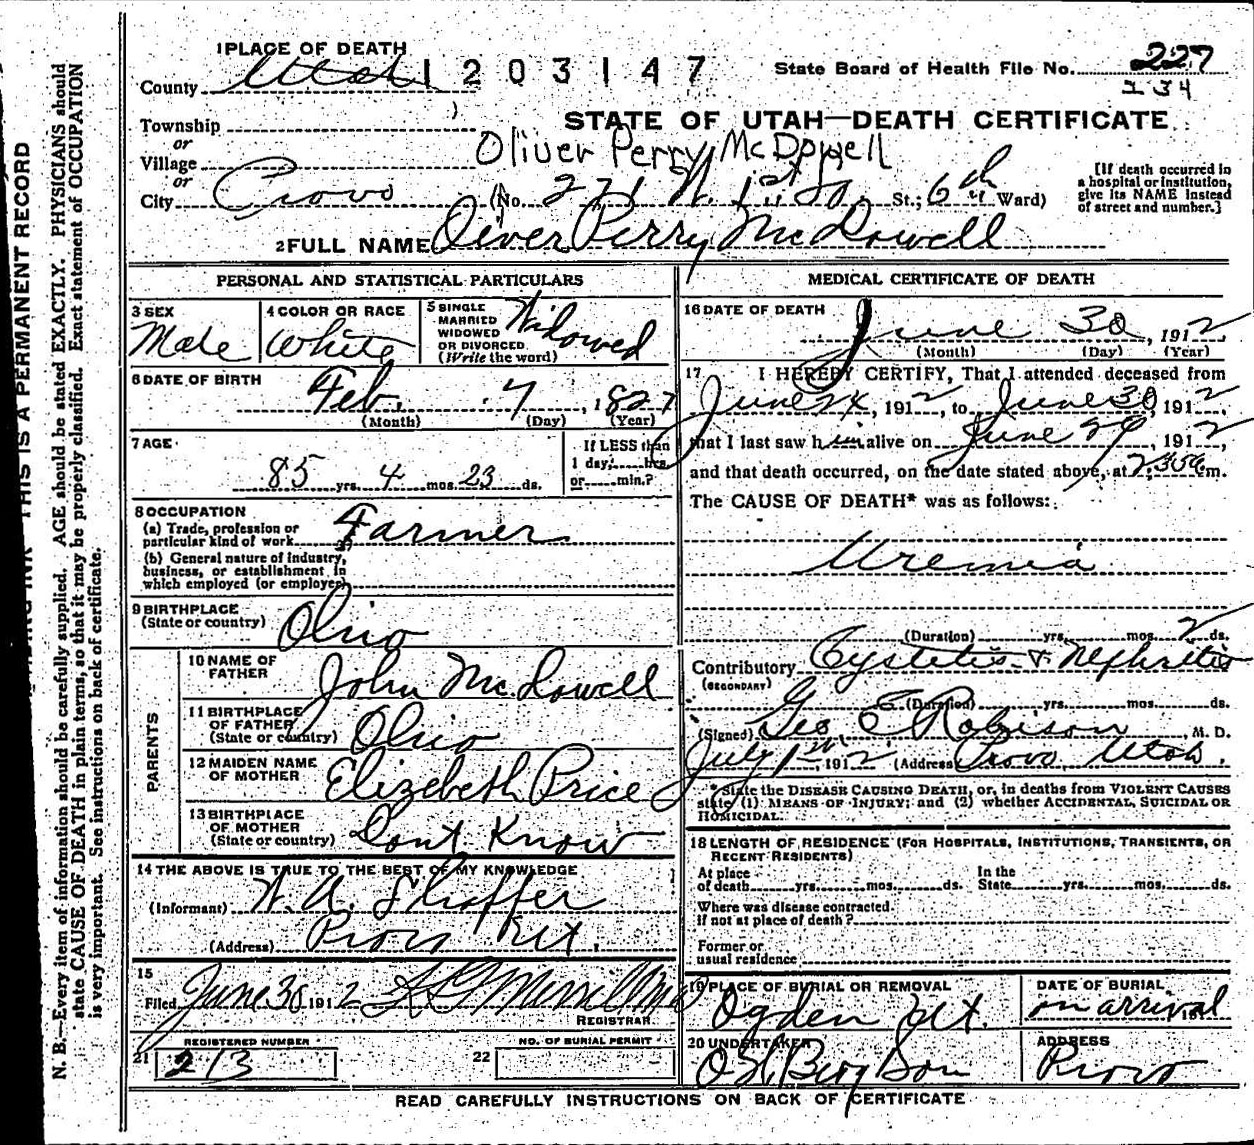 1 PLACE OF DEATH
County Utah 1203147
State Board of Health File No. 227
234
Township
or
Village
or
City Provo
STATE OF UTAH—DEATH CERTIFICATE
Oliver Perry McDowell
(No. 271 W. 1st So. St.; 6th Ward)
[If death occurred in
a hospital or institution,
give its NAME instead
of street and number.]
2 FULL NAME Oliver Perry McDowell
PERSONAL AND STATISTICAL PARTICULARS
3 SEX
Male
4 COLOR OR RACE
White
5 SINGLE
MARRIED
WIDOWED
OR DIVORCED
(Write the word)
Widowed
6 DATE OF BIRTH
Feb. 7, 1827
(Month) (Day) (Year)
7 AGE
85 yrs. 4 mos. 23 ds.
If LESS than
1 day, hrs.
or min.?
8 OCCUPATION
(a) Trade, profession or
particular kind of work Farmer
(b) General nature of industry,
business, or establishment in
which employed (or employer)
9 BIRTHPLACE
(State or country) Ohio
PARENTS
10 NAME OF
FATHER John McDowell
11 BIRTHPLACE
OF FATHER
(State or country) Ohio
12 MAIDEN NAME
OF MOTHER Elizebeth Price
13 BIRTHPLACE
OF MOTHER
(State or country) Dont Know
14 THE ABOVE IS TRUE TO THE BEST OF MY KNOWLEDGE
(Informant) W. A. Shaffer
(Address) Provo Ut.
15
Filed June 30 1912
REGISTRAR
REGISTERED NUMBER
21 213
NO. OF BURIAL PERMIT
22
MEDICAL CERTIFICATE OF DEATH
16 DATE OF DEATH
June 30, 1912
(Month) (Day) (Year)
17 I HEREBY CERTIFY, That I attended deceased from
June 24, 1912, to June 30, 1912,
that I last saw him alive on June 29, 1912
and that death occurred, on the date stated above, at 2:35 a m.
The CAUSE OF DEATH* was as follows:
Uremia
(Duration) yrs. mos. 2 ds.
Contributory Cystetis & Nephritis
(SECONDARY)
(Duration) yrs. mos. ds.
(Signed) Geo E Robison, M. D.
July 1st, 1912 (Address) Provo, Utah.
* State the DISEASE CAUSING DEATH, or, in deaths from VIOLENT CAUSES
state (1) MEANS OF INJURY; and (2) whether ACCIDENTAL, SUICIDAL OR
HOMICIDAL.
18 LENGTH OF RESIDENCE (FOR HOSPITALS, INSTITUTIONS, TRANSIENTS, OR
RECENT RESIDENTS)
At place
of death yrs. mos. ds.
In the
State yrs. mos. ds.
Where was disease contracted.
if not at place of death?
Former or
usual residence
19 PLACE OF BURIAL OR REMOVAL
Ogden Ut.
DATE OF BURIAL
on arrival
20 UNDERTAKER
ADDRESS
Provo
READ CAREFULLY INSTRUCTIONS ON BACK OF CERTIFICATE
THIS IS A PERMANENT RECORD
N. B.—Every item of information should be carefully supplied. AGE should be stated EXACTLY. PHYSICIANS should
state CAUSE OF DEATH in plain terms, so that it may be properly classified. Exact statement of OCCUPATION
is very important. See instructions on back of certificate.